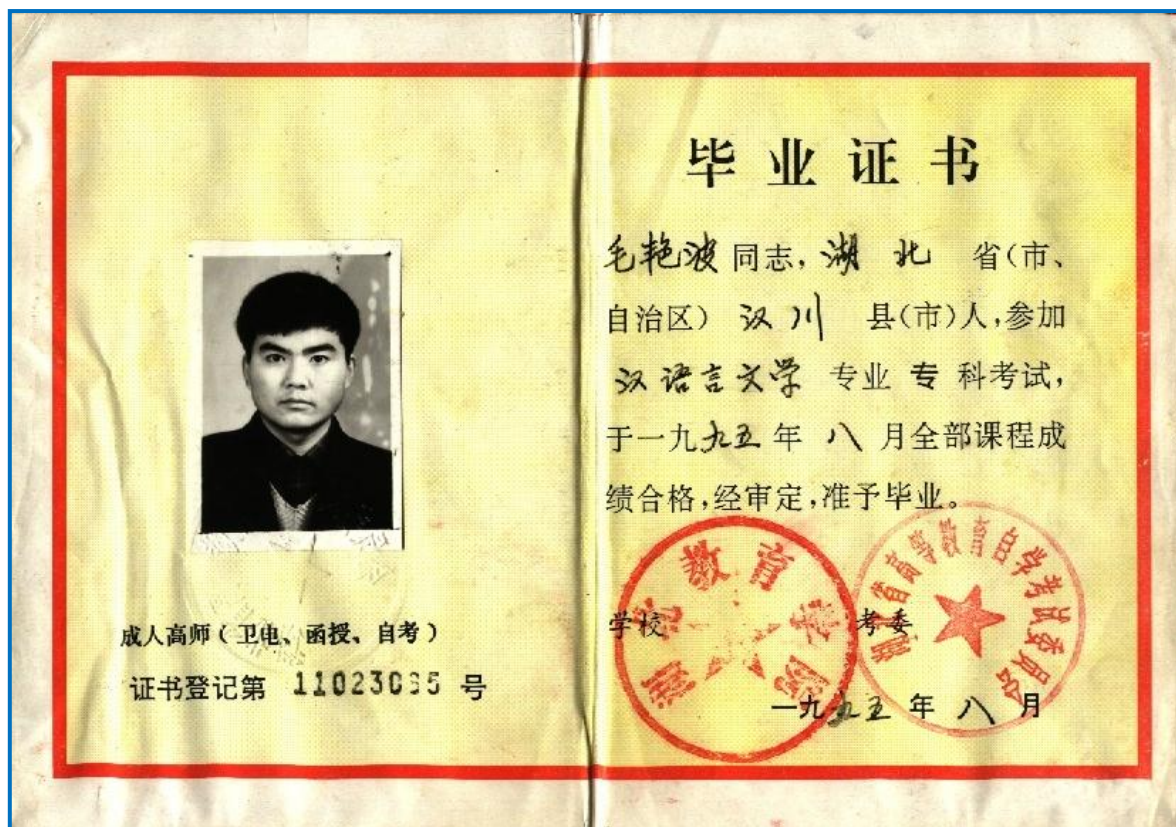 成人高师（卫电、函授、自考）
证书登记第 11023095 号
毕业证书
毛艳波同志，湖北 省（市、
自治区）汉川 县（市）人，参加
汉语言文学 专业 专 科考试，
于一九九五年 八 月全部课程成
绩合格，经审定，准予毕业。
湖北教育学院
湖北省高等教育自学考试委员会
学校 考委
一九九五年 八 月